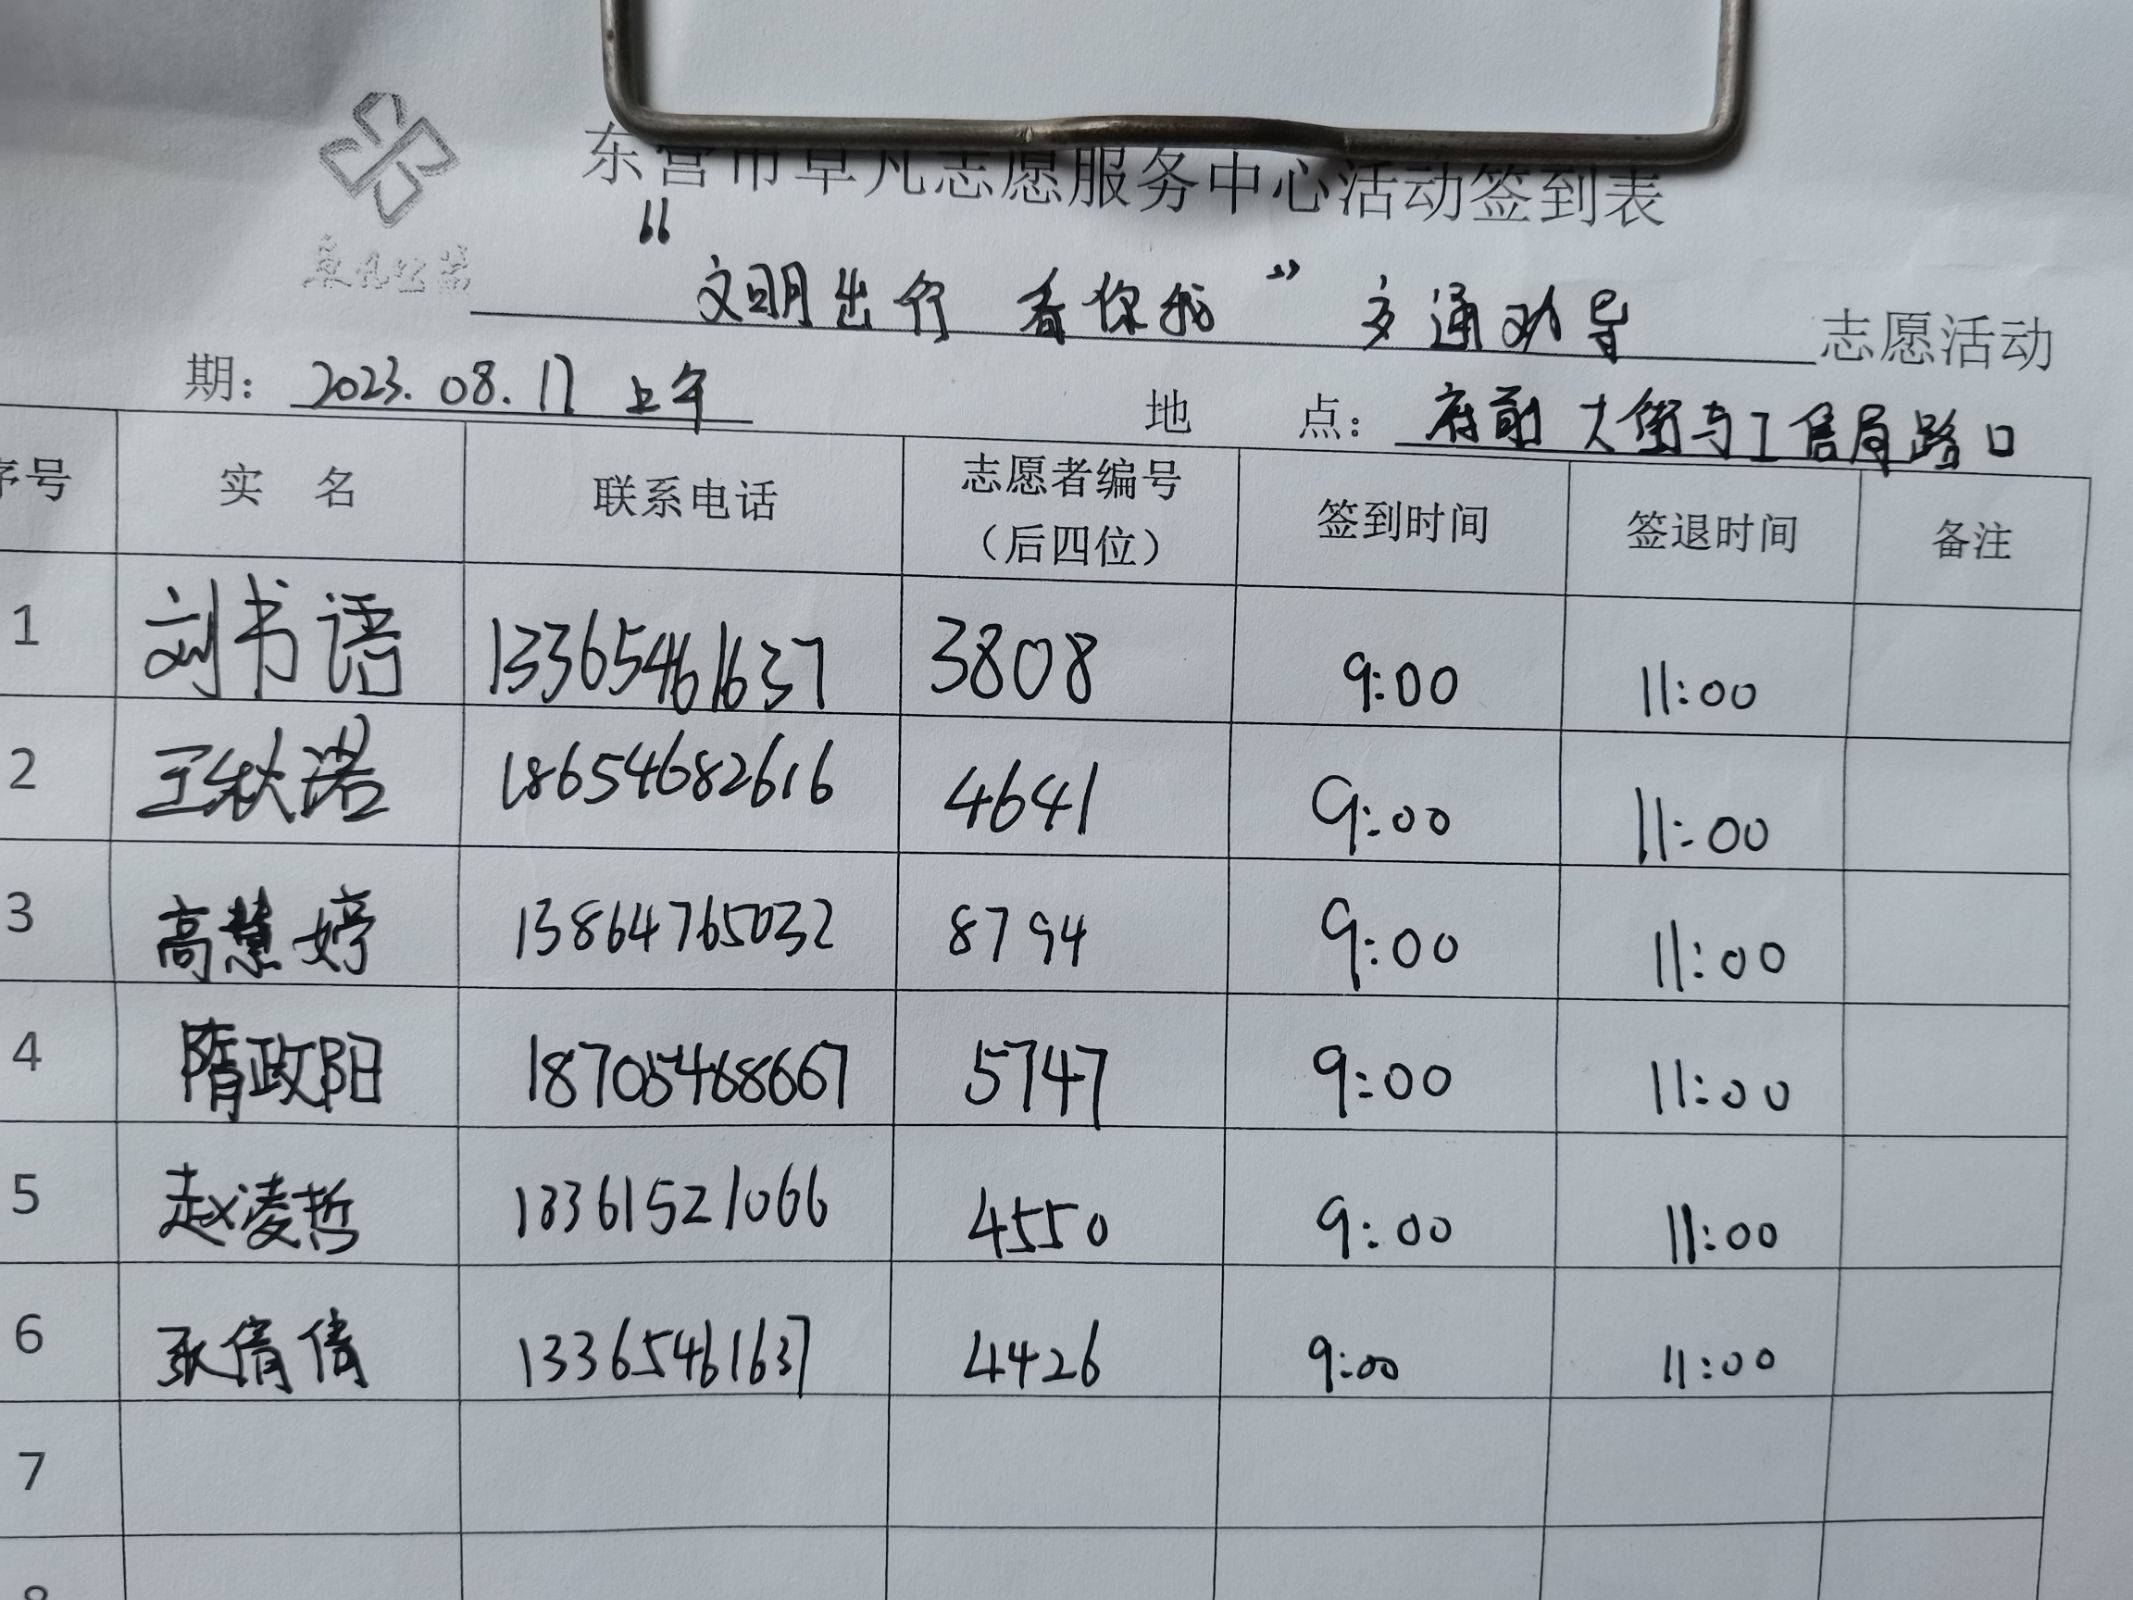 东营市卓凡志愿服务中心活动签到表
卓凡公益
“文明出行 看你我” 交通劝导 志愿活动
期: 2023.08.17 上午 地 点: 府前大街与工信局路口
序号 实 名 联系电话 志愿者编号（后四位） 签到时间 签退时间 备注
1 刘书语 13365461637 3808 9:00 11:00
2 王秋诺 18654682616 4641 9:00 11:00
3 高慧婷 13864765032 8794 9:00 11:00
4 隋政阳 18705468667 5747 9:00 11:00
5 赵凌哲 13361521066 4550 9:00 11:00
6 张倩倩 13365461637 4426 9:00 11:00
7
8